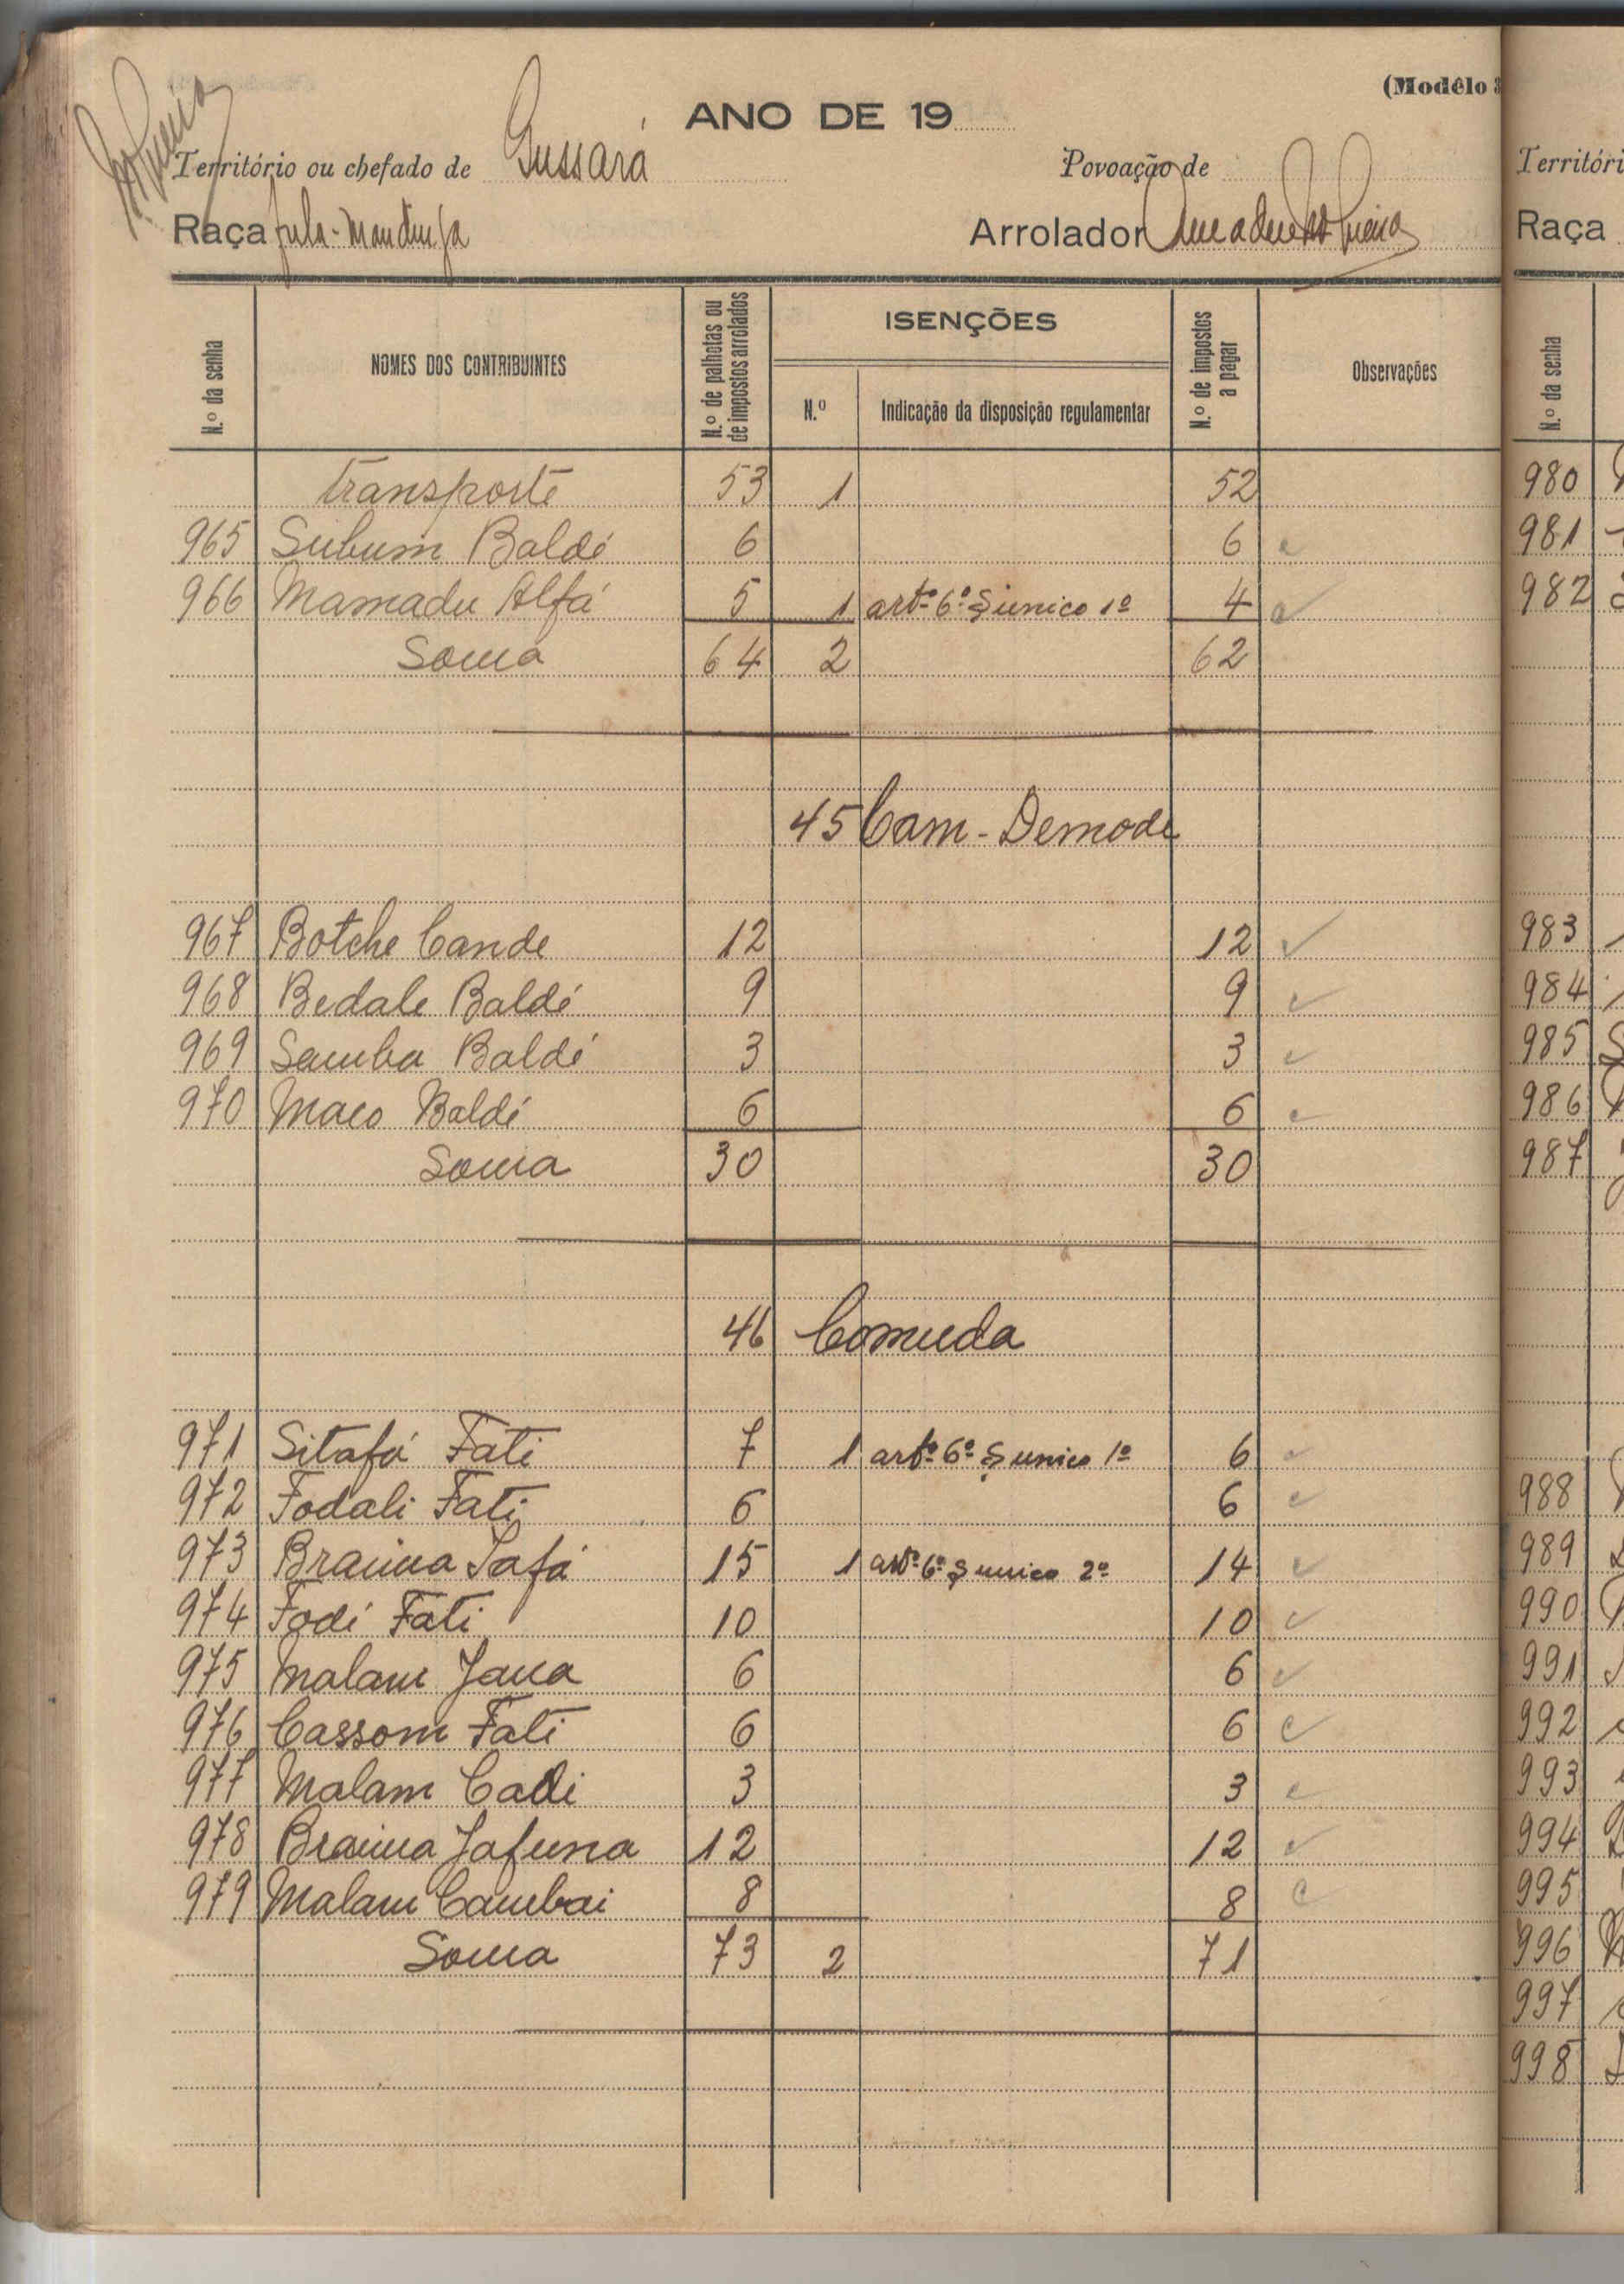 (Modêlo 3
ANO DE 19
Território ou chefado de Gussará Povoação de
Raça Fula-Mandinga Arrolador
N.º da senha NOMES DOS CONTRIBUINTES N.º de palhotas ou de impostos arrolados ISENÇÕES N.º Indicação da disposição regulamentar N.º de impostos a pagar Observações
Transporte 53 1 52
965 Subum Baldé 6 6
966 Mamadu Alfá 5 1 artº 6º § unico 1º 4
Soma 64 2 62
45 Cam-Demode
967 Botche Cande 12 12
968 Bedale Baldé 9 9
969 Samba Baldé 3 3
970 Maco Baldé 6 6
Soma 30 30
46 Comuda
971 Sitafá Fati 7 1 artº 6º § unico 1º 6
972 Fodali Fati 6 6
973 Braima Safá 15 1 artº 6º § unico 2º 14
974 Fodé Fati 10 10
975 Malam Jana 6 6
976 Cassom Fati 6 6
977 Malam Cadi 3 3
978 Braima Jafuna 12 12
979 Malam Cambai 8 8
Soma 73 2 71
Territóri
Raça
N.º da senha
980
981
982
983
984
985
986
987
988
989
990
991
992
993
994
995
996
997
998